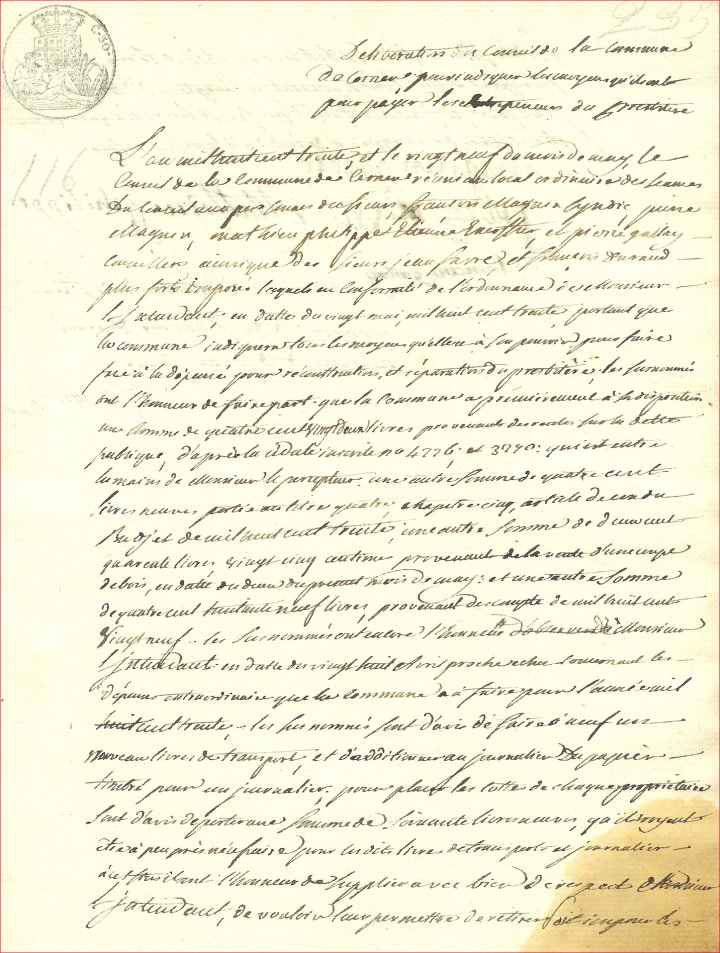 C. 50.
235
Deliberation du Conseil de la Commune
De Cernex pour indiquer les moyens qu'ils ont
pour payer les Entrepreneurs du presbitere
L'an mil huit cent trente, et le vingt neuf du mois de may, le
Conseil de la Commune de Cernex réuni au local ordinaire des seances
Du Conseil aux personnes des sieurs François Magnin Syndic, pierre
Magnin, mathieu philippe, Etienne et pierre gallay
Conseillers ainsi que des sieurs jean favre et
plus forts Imposés lesquels en Conformité de l'ordonnance de Monsieur
l'jntendant, en datte du vingt mai, mil huit cent trente portant que
la commune indiquera tous les moyens qu'elle a à son pouvoir pour faire
face à la dépense pour réconstruction, et réparation du presbitère, les surnommés
ont l'honneur de faire part que la Commune a premièrement à sa disposition
une somme de quatre cent vingt deux livres provenant des rentes sur la dette
publique, d'après la Cédule inscrite no 4776. et 3790. qui est entre
les mains de Monsieur le percepteur. une autre somme de quatre cent
livres neuves portée au titre quatre, chapitre cinq, article du
Budjet de mil huit cent trente, une autre somme de d'eux cent
quarente livres vingt cinq centime provenant de la vente d'une coupe
de bois, en datte du deux du present mois de may: et une autre somme
de quatre cent neuf livres, provenant des compte de mil huit cent
vingt neuf. les susnommés ont encore l'honneur d'observer à Monsieur
l'jntendant en datte du vingt huit Avril proche echu Concernant les
dépenses extraordinaire que la Commune a à faire pour l'année mil
huit cent trente, les susnommé sont d'avis de faire à neuf un
nouveau livres de transport, et d'additionner au journalier Du papier
timbré pour un journalier. pour placer les cottes de chaque propriétaire
sont d'avis de porter une somme de soixante livres neuves, qu'ils croyent
être à peu près nécessaire pour les dits livre de transports et journalier
à cet effet ils ont l'honneur de supplier avec bien de respect Monsieur
l'jntendant, de vouloir leur permettre de retirer les